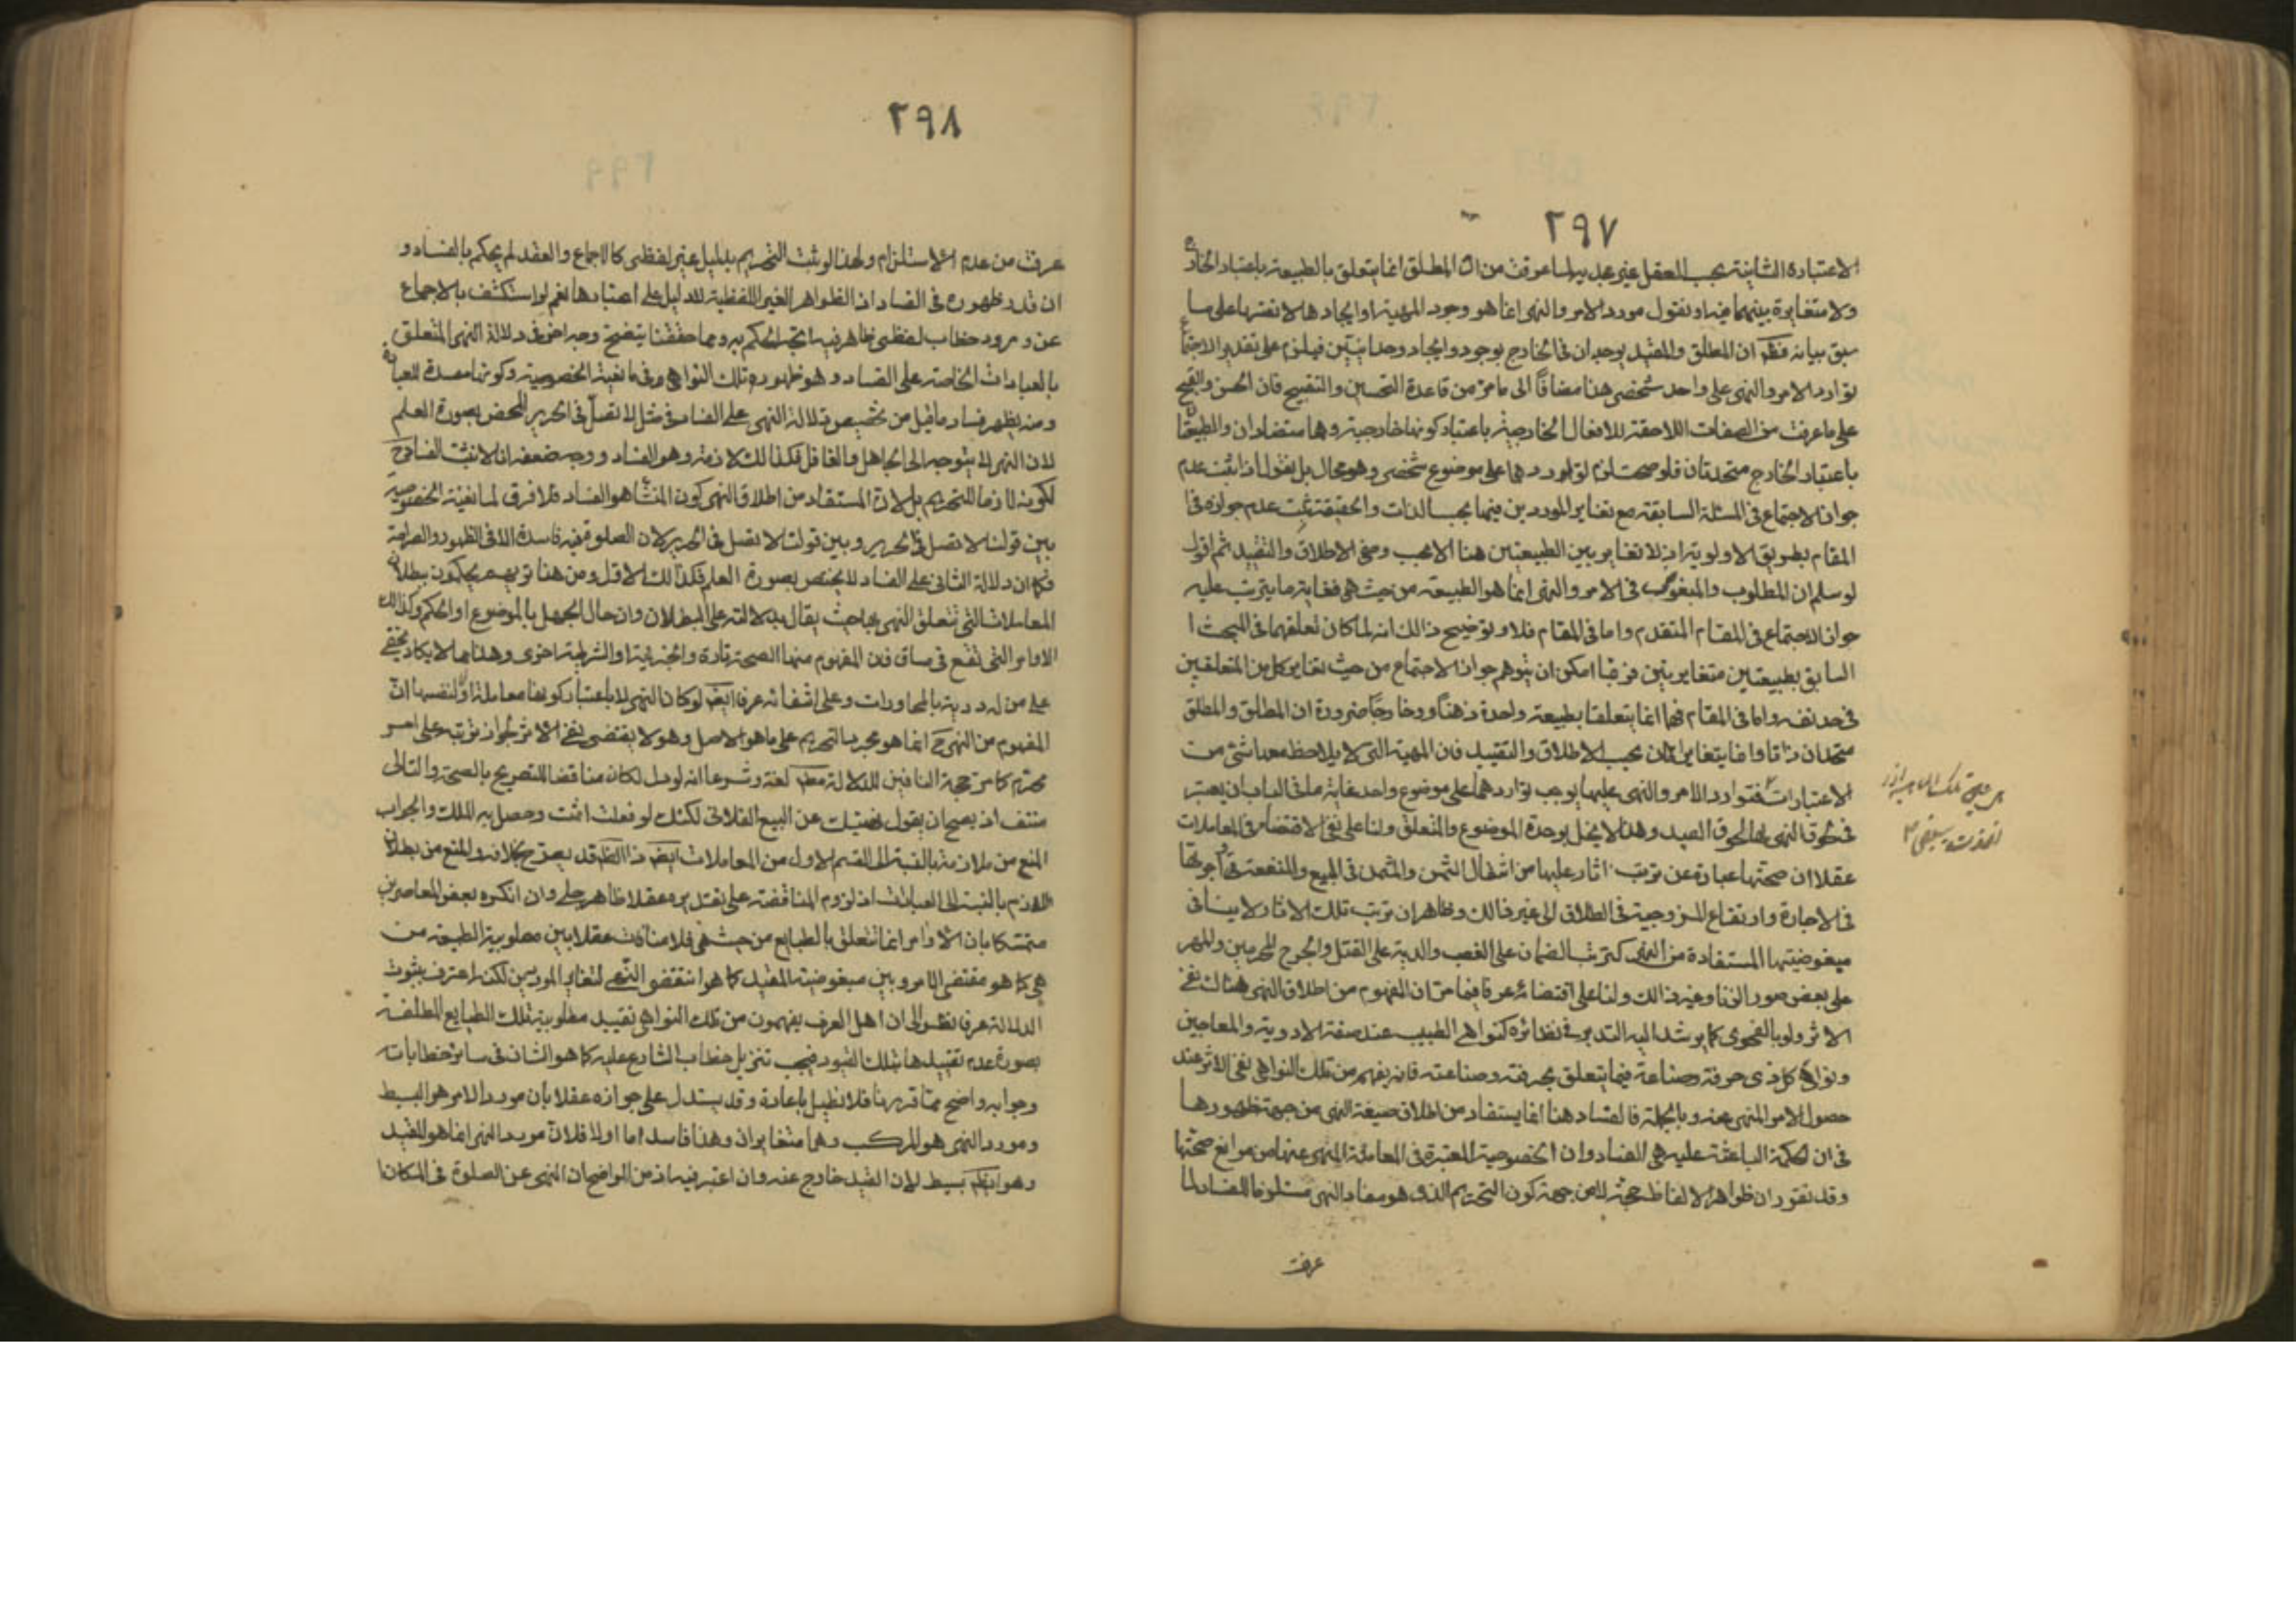 ٢٩٧
الاعتبارة الثانية بحسب العقل غير عديد لما عرفت من ان المطلق انما يتعلق بالطبيعة باعتبار الخارج
ولا متغايرة بينهما فيه او نقول مورد الامر والنهى انما هو وجود المهية او ايجادها لا نفسها على ما
سبق بيانه فنظر ان المطلق والمقيد يوجدان فى الخارج بوجود وايجاد وحدانيين فيلزم على تقدير الاجتماع
توارد الامر والنهى على واحد شخصى هذا مضافا الى ما مر من قاعدة التحسين والتقبيح فان الحسن والقبح
على ما عرفت من الصفات اللاحقة للافعال الخارجية باعتبار كونها خارجية وهما متضادان والطبيعتان
باعتبار الخارج متحدتان فلو صحت لزم تواردهما على موضوع شخصى وهو محال بل نقول اذا ثبت عدم
جواز الاجتماع فى المسئلة السابقة مع تغاير الموردين فيهما بحسب الذات والحقيقة ثبت عدم جوازه فى
المقام بطريق الاولوية اذ لا تغاير بين الطبيعتين هنا الا بحسب وصفى الاطلاق والتقييد ثم اقول
لو سلم ان المطلوب والمبغوض فى الامر والنهى انما هو الطبيعة من حيث هى فغاية ما يترتب عليه
جواز الاجتماع فى المقام المتقدم واما فى المقام فلا وتوضيح ذلك انه لما كان تعلقهما فى المبحث ا
السابق بطبيعتين متغايرتين فربما امكن ان يتوهم جواز الاجتماع من حيث تغاير كل من المتعلقين
فى حد نفسه واما فى المقام فهما انما يتعلقا بطبيعة واحدة ذهنا وخارجا ضرورة ان المطلق والمطلق
متحدان ذاتا وانما يتغايران بحسب الاطلاق والتقييد فان المهية التى لا يلاحظ معها شئ من
الاعتبارات فتوارد الامر والنهى عليها يوجب تواردهما على موضوع واحد غاية ما فى الباب ان يعتبر
فى لحوق النهى لها لحوق القيد وهذا لا يخل بوحدة الموضوع والمتعلق ولنا على نفى الاقتضاء فى المعاملات
عقلا ان صحتها عبارة عن ترتب اثار عليها من انتقال الثمن والمثمن فى البيع والمنفعة واجرتها
فى الاجارة وارتفاع الزوجية فى الطلاق الى غير ذلك وظاهر ان ترتب تلك الاثار لا ينافى
مبغوضيتها المستفادة من النهى كترتب الضمان على الغصب والدية على القتل والجرح المحرمين والمهر
على بعض صور الزنا وغير ذلك ولنا على اقتضائه عرفا فيما مر ان المفهوم من اطلاق النهى هناك نفى
الاثر ولو بالفحوى كما يرشد اليه التدبر فى نظائره كنواهى الطبيب عند صفة الادوية والمعاجين
ونواهى كل ذى حرفة وصناعة فيما يتعلق بحرفته وصناعته فانه يفهم من تلك النواهى نفى الاثر عند
حصول الامر المنهى عنه وبالجملة فالفساد هنا انما يستفاد من اطلاق صيغة النهى من جهة ظهورها
فى ان الحكمة الباعثة عليه هى الفساد وان الخصوصية المعتبرة فى المعاملة المنهى عنها من موانع صحتها
وقد تقرر ان ظواهر الالفاظ حجة لا من جهة كون التحريم الذى هو مفاد النهى مستلزما للفساد لما
عرفت
٢٩٨
عرفت من عدم الاستلزام ولهذا لو ثبت التحريم بدليل غير لفظى كالاجماع والعقد لم يحكم بالفساد و
ان قدر ظهوره فى الفساد اذ الظواهر الغير اللفظية لا دليل على اعتبارها نعم لو استكشف بالاجماع
عن ورود خطاب لفظى ظاهر فيه اتجه الحكم به ومما حققنا يتضح وجه اخر فى دلالة النهى المتعلق
بالعبادات الخاصة على الفساد وهو ظهور تلك النواهى فى مانعية الخصوصية وكونها مفسدة للعبادة
ومنه يظهر فساد ما قيل من تخصيص دلالة النهى على الفساد فى مثل لا تصل فى الحرير المحض بصورة العلم
لان النهى لا يتوجه الى الجاهل والغافل فكذا لازمه وهو الفساد ووجه ضعفه ان لا نثبت الفساد ح
لكونه لازما للتحريم بل لان المستفاد من اطلاق النهى كون المنشأ هو الفساد فلا فرق لمانعية الخصوصية
بين قولنا لا تصل فى الحرير وبين قولنا لا تصل فى الحرير لان الصلوة فيه فاسدة الا فى الظهور والصراحة
فكما ان دلالة الثانى على الفساد لا يختص بصورة العلم فكذلك الاول ومن هنا تريهم يحكمون ببطلان
المعاملات التى تتعلق النهى بها حيث يقال بدلالته على البطلان وان حال الجهل بالموضوع او الحكم وكذلك
الاوامر التى تقع فى مساق فان المفهوم منها الصحة تارة والجزئية او الشرطية اخرى وهذا مما لا يكاد يخفى
على من له دربة بالمحاورات وعلى انتفائه عرفا ايضا لو كان النهى لا باعتبار كونها معاملة او لنفسها ان
المفهوم من النهى ح انما هو مجرد التحريم على ما هو الاصل وهو لا يقتضى نفى الاثر لجواز ترتبه على امر
محرم كما مر حجة النافين للدلالة مطلقا لغة وشرعا انه لو دل لكان مناقضا للتصريح بالصحة والتالى
منتف اذ يصح ان يقول نهيتك عن البيع الفلانى لكنك لو فعلت اثمت وحصل به الملك والجواب
المنع من ملازمة بالنسبة الى القسم الاول من المعاملات ايضا اذ الظاهر قد يصرح بخلافه والمنع من بطلان
اللازم بالنسبة الى العبادات اذ لزوم المناقضة على تقديره عقلا ظاهر جلى وان انكره بعض المعاصرين
متمسكا بان الاوامر انما تتعلق بالطبايع من حيث هى فلا منافات عقلا بين مطلوبية الطبيعة من
هى كما هو مقتضى الامر وبين مبغوضية المقيد كما هو مقتضى النهى لتغاير الموردين لكنه اعترف بثبوت
الدلالة عرفا نظرا الى ان اهل العرف يفهمون من تلك النواهى تقييد مطلوبية تلك الطبايع المطلقة
بصورة عدم تقييدها بتلك القيود فيجب تنزيل خطاب الشارع عليه كما هو الشان فى سائر خطابات
وجوابه واضح مما قررنا فلا نطيل باعادة وقد يستدل على جوازه عقلا بان مورد الامر هو البسيط
ومورد النهى هو المركب وهما متغايران وهذا فاسد اما اولا فلان مورد النهى انما هو المقيد
وهو ايضا بسيط لان القيد خارج عنه وان اعتبر فيه اذ من الواضح ان النهى عن الصلوة فى المكان